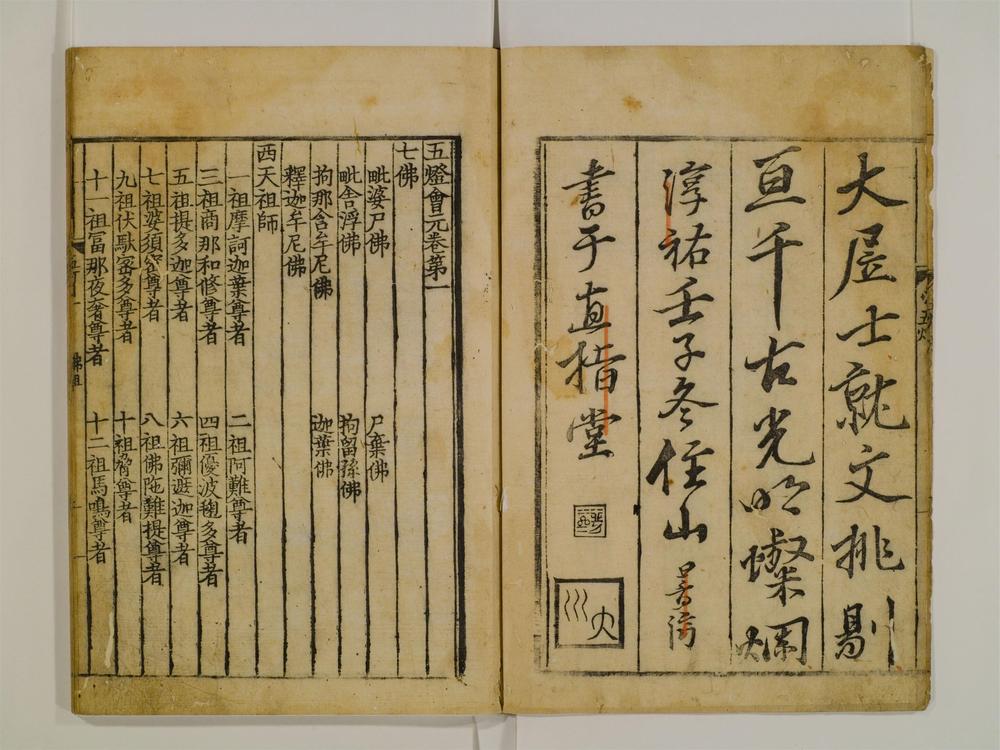 大居士就文挑剔
亘千古光明燦爛
淳祐壬子冬住山普濟
書于直指堂
大川
五燈會元卷第一
七佛
毗婆尸佛 尸棄佛
毗舍浮佛 拘留孫佛
拘那含牟尼佛 迦葉佛
釋迦牟尼佛
西天祖師
一祖摩訶迦葉尊者 二祖阿難尊者
三祖商那和修尊者 四祖優波毱多尊者
五祖提多迦尊者 六祖彌遮迦尊者
七祖婆須蜜尊者 八祖佛陀難提尊者
九祖伏馱蜜多尊者 十祖脅尊者
十一祖富那夜奢尊者 十二祖馬鳴尊者